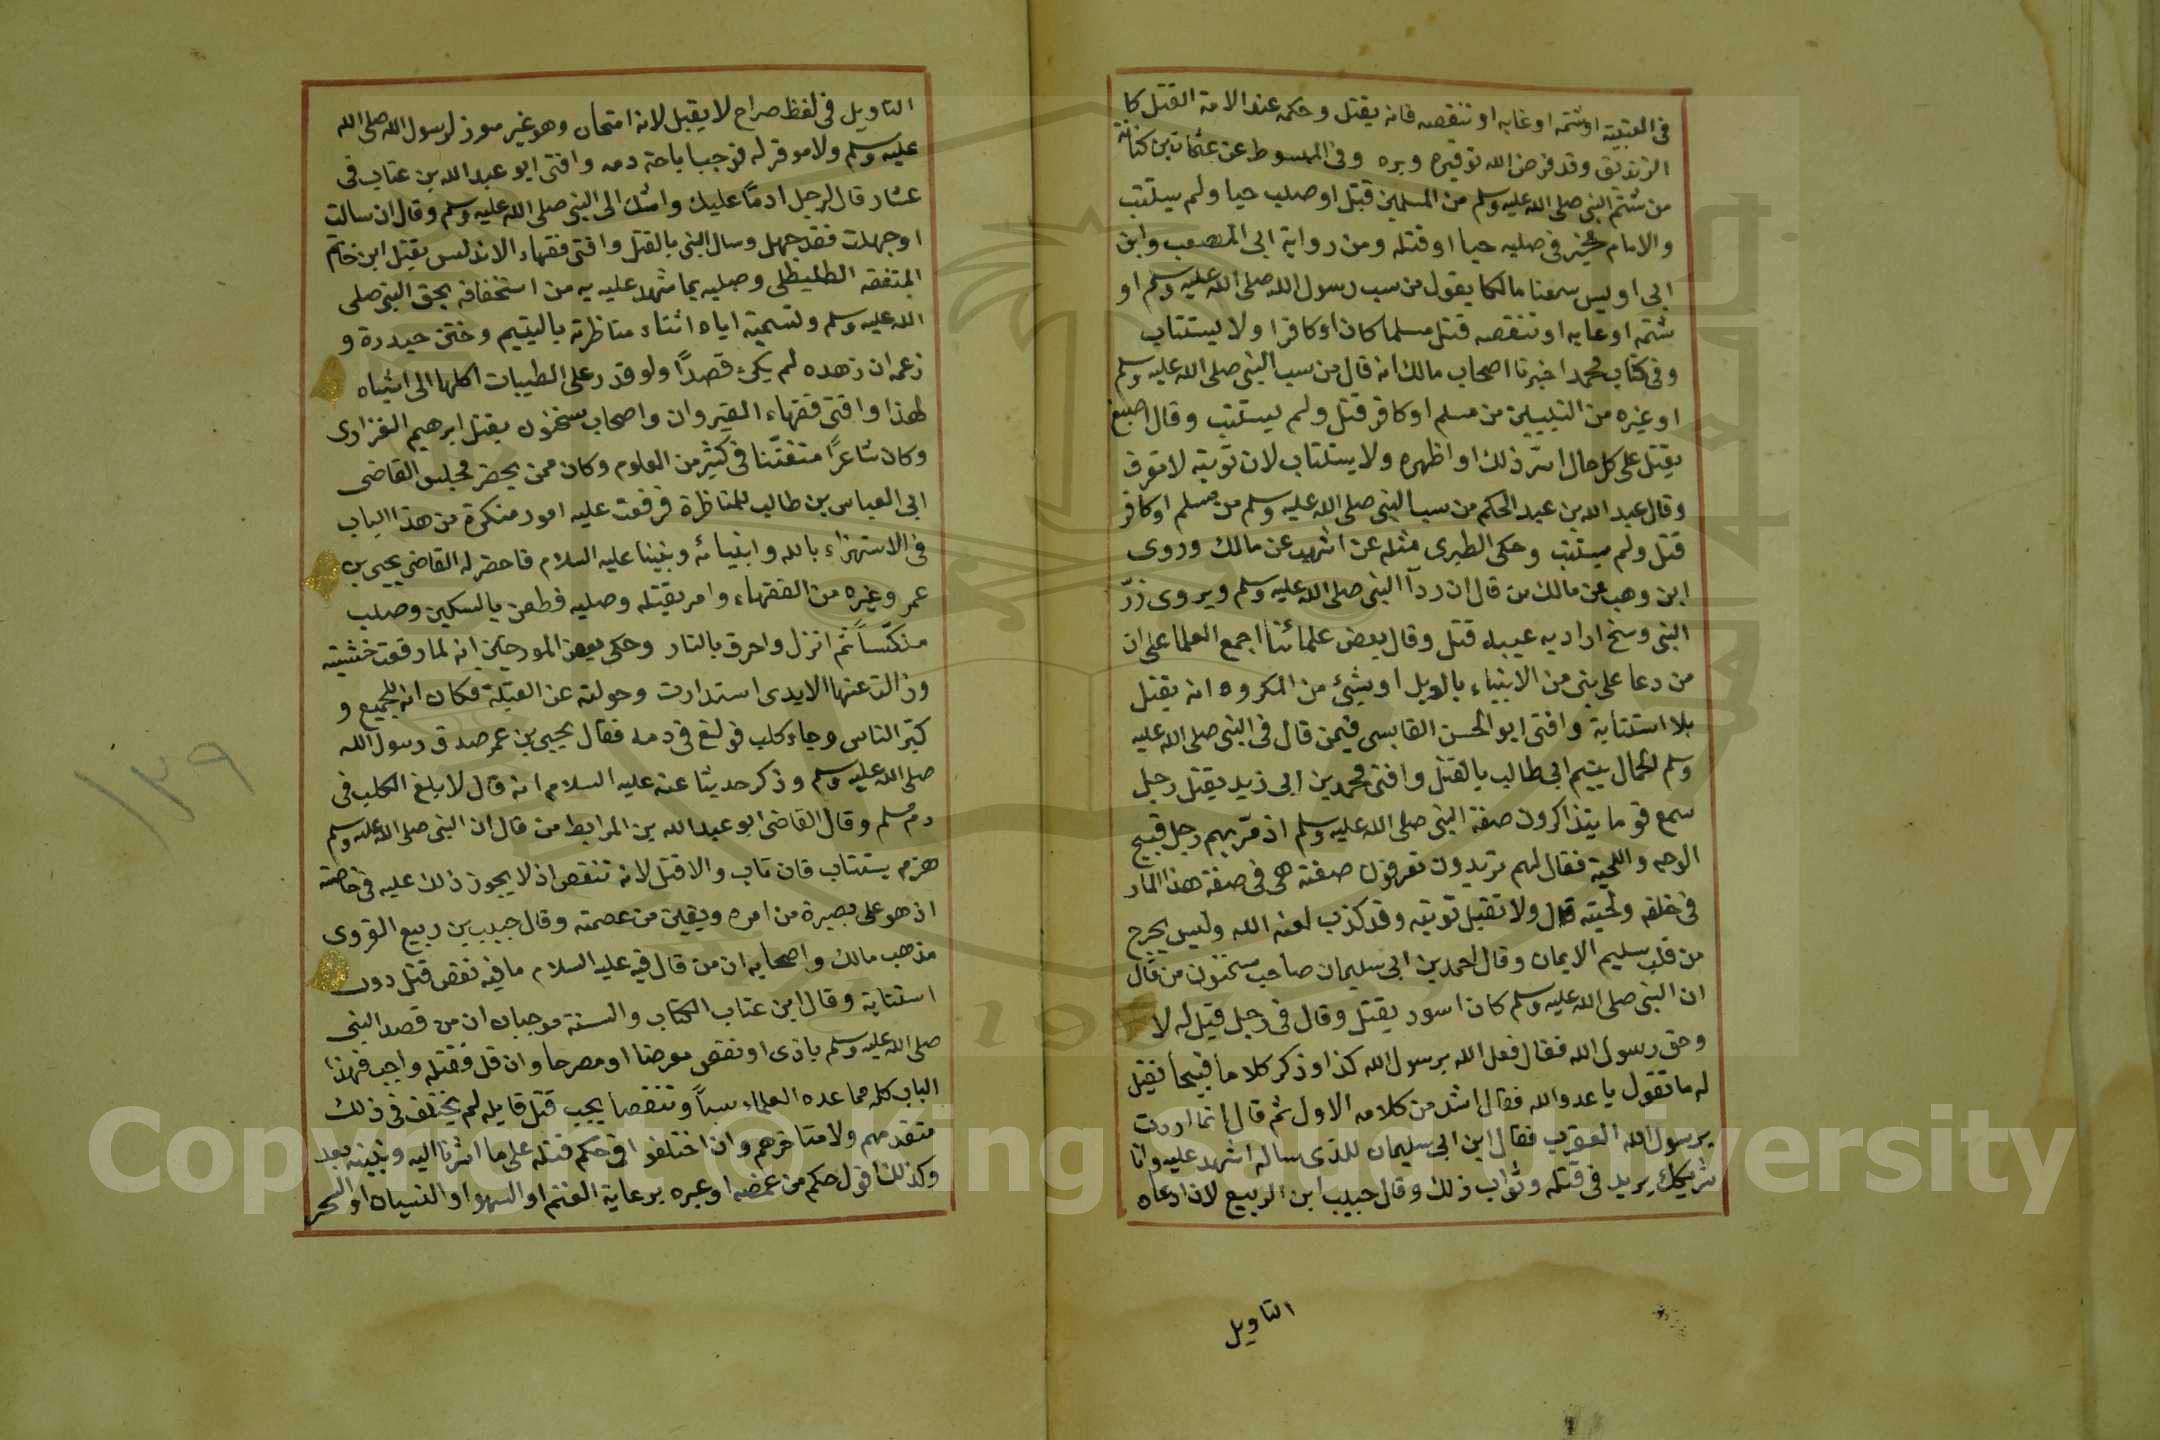 في العتبية او شتمه او عابه او تنقصه فانه يقتل وحكمه عند الامة القتل كا
لزنديق وقد فرض الله توقيره وبره وفى المبسوط عن عثمان بن كنانة
من شتم النبى صلى الله عليه وسلم من المسلمين قتل او صلب حيا ولم يستتب
والامام مخير فى صلبه حيا او قتله ومن رواية ابى المصعب وابن
ابى اويس سمعنا مالكا يقول من سب رسول الله صلى الله عليه وسلم او
شتمه او عابه او تنقصه قتل مسلما كان او كافرا ولا يستتاب
وفى كتاب محمد اخبرنا اصحاب مالك انه قال من سب النبى صلى الله عليه وسلم
او غيره من النبيين من مسلم او كافر قتل ولم يستتب وقال اصبغ
يقتل على كل حال اسرّ ذلك او اظهره ولا يستتاب لان توبته لا تعرف
وقال عبد الله بن عبد الحكم من سب النبى صلى الله عليه وسلم من مسلم او كافر
قتل ولم يستتب وحكى الطبرى مثله عن اشهب عن مالك وروى
ابن وهب عن مالك من قال ان ردآ النبى صلى الله عليه وسلم ويروى زرّ
النبى وسخ اراد به عيبه قتل وقال بعض علمائنا اجمع العلما على ان
من دعا على نبى من الانبياء بالويل او بشئ من المكروه انه يقتل
بلا استتابة وافتى ابو الحسن القابسى فيمن قال فى النبى صلى الله عليه
وسلم الحمال يتيم ابى طالب بالقتل وافتى محمد بن ابى زيد بقتل رجل
سمع قوما يتذاكرون صفة النبى صلى الله عليه وسلم اذ مرّ بهم رجل قبيح
الوجه واللحية فقال لهم تريدون تعرفون صفته هى فى صفة هذا المار
فى خلقه ولحيته قال ولا تقبل توبته وقد كذب لعنه الله وليس يخرج
من قلب سليم الايمان وقال احمد بن ابى سليمان صاحب سحنون من قال
ان النبى صلى الله عليه وسلم كان اسود يقتل وقال فى رجل قيل له لا
وحق رسول الله فقال فعل الله برسول الله كذا وذكر كلاما قبيحا فقيل
له ما تقول يا عدو الله فقال اشد من كلامه الاول ثم قال انما اردت
برسول الله العقرب فقال ابن ابى سليمان للذى ساله اشهد عليه وانا
شريكك يريد فى قتله وثواب ذلك وقال حبيب ابن الربيع لان ادعاه
التاويل
التاويل فى لفظ صراح لا يقبل لانه امتحان وهو غير معزز لرسول الله صلى الله
عليه وسلم ولا موقر له فوجب اباحة دمه وافتى ابو عبد الله بن عتاب فى
عشار قال لرجل ادّ ما عليك واشك الى النبى صلى الله عليه وسلم وقال ان سالت
او جهلت فقد جهل وسال النبى بالقتل وافتى فقهاء الاندلس بقتل ابن حاتم
المتفقه الطليطلى وصلبه بما شهد عليه به من استخفافه بحق النبى صلى
الله عليه وسلم وتسميته اياه اثناء مناظرته باليتيم وختن حيدرة و
زعمه ان زهده لم يكن قصدًا ولو قدر على الطيبات اكلها الى اشباه
لهذا وافتى فقهاء القيروان واصحاب سحنون بقتل ابرهيم الفزارى
وكان شاعرًا متفنّنا فى كثير من العلوم وكان ممن يحضر مجلس القاضى
ابى العباس بن طالب للمناظرة فرفعت عليه امور منكرة من هذا الباب
فى الاستهزاء بالله وانبيائه ونبينا عليه السلام فاحضر له القاضى يحيى بن
عمر وغيره من الفقهاء وامر بقتله وصلبه فطعن بالسكين وصلب
منكّسًا ثم انزل واحرق بالنار وحكى بعض المورخين انه لما رفعت خشبته
وزالت عنها الايدى استدارت وحولته عن القبلة فكان اية للجميع و
كبّر الناس وجاء كلب فولغ فى دمه فقال يحيى بن عمر صدق رسول الله
صلى الله عليه وسلم وذكر حديثا عنه عليه السلام انه قال لا يلغ الكلب فى
دم مسلم وقال القاضى ابو عبد الله بن المرابط من قال ان النبى صلى الله عليه وسلم
هزم يستتاب فان تاب والا قتل لانه تنقص اذ لا يجوز ذلك عليه فى خاصته
اذ هو على بصيرة من امره ويقين من عصمته وقال حبيب بن ربيع القروى
مذهب مالك واصحابه ان من قال فيه عليه السلام ما فيه نقص قتل دون
استتابة وقال ابن عتاب الكتاب والسنة موجبان ان من قصد النبى
صلى الله عليه وسلم باذى او نقص معرضا او مصرحا وان قل فقتله واجب فهذا
الباب كله مما عده العلماء سباً وتنقصا يجب قتل قايله لم يختلف فى ذلك
متقدمهم ولا متاخرهم وان اختلفوا فى حكم قتله على ما اشرنا اليه ونبينه بعد
وكذلك اقول حكم من غمضه او عيره برعاية الغنم او السهو او النسيان او السحر
١٣٩
Copyright © King Saud University
1957